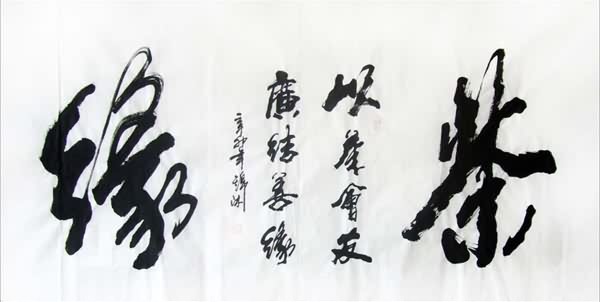 茶
以茶會友
廣結善緣
辛卯年
緣